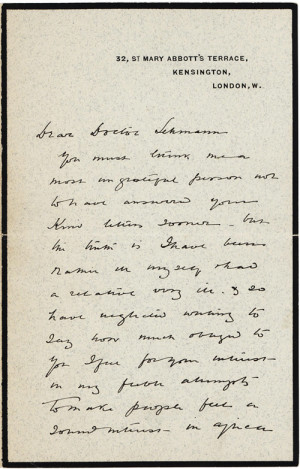 32, ST MARY ABBOTT'S TERRACE,
KENSINGTON,
LONDON, W.
Dear Doctor Lehmann
You must think me a
most ungrateful person not
to have answered your
Kind letters sooner - but
the truth is I have been
rather ill myself & had
a relative very ill. & so
have neglected writing to
say how much obliged to
you I feel for your interest
in my feeble attempts
to make people feel a
sound interest in Africa